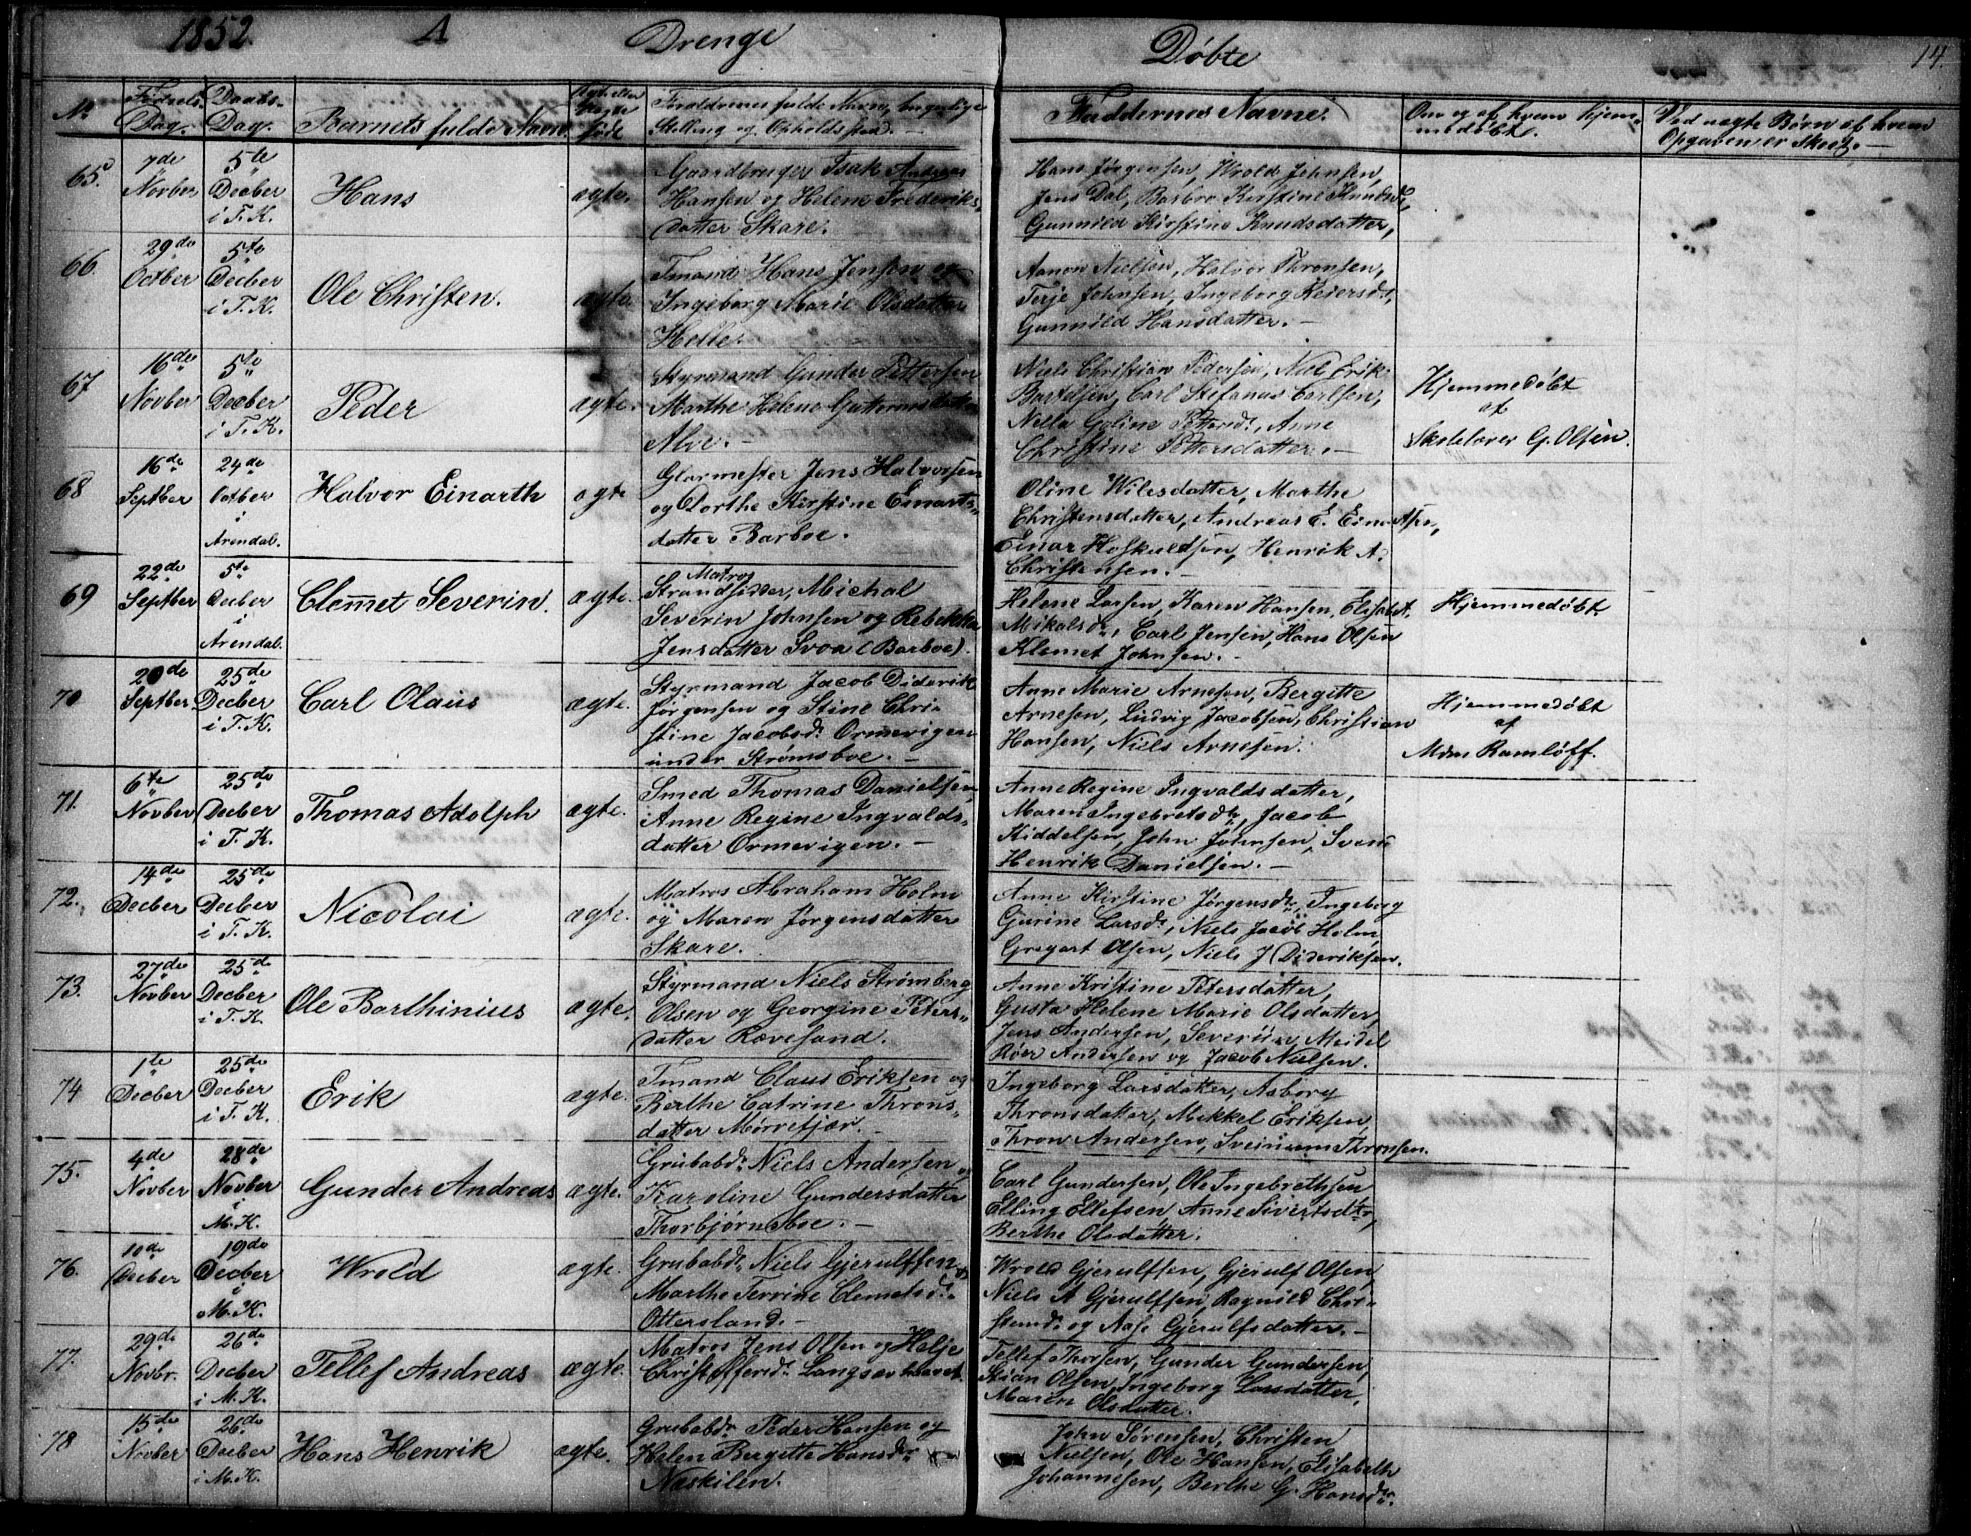 1852. A Drenge Døbte 14.
No Fødsels Dag. Daabs-Dag. Barnets fulde Navn. Ægte eller Uægte føde Forældrenes fulde Navn, borgerlige Stilling og Opholdssted. — Faddernes Navne. Om og af hvem hjemmedøbt. Ved uægte Børn af hvem Opgaven er Skeet. —
65. 7de Novber 5te Decber i T. K. Hans ægte. Gaardbruger Isak Andreas
Hansen og Helene Frederiks-
datter Skare.
Hans Jørgensen, Wrold Johnsen,
Jens Dal, Barbro Kirstine Knudsd.,
Gunnild Kirstine Knudsdatter,
66. 29de Octber 5te Decber i T. K. Ole Christen. ægte. Tmand Hans Jensen og
Ingeborg Marie Olsdatter
Helle.
Aanon Nielsen, Halvor Thronsen,
Terje Johnsen, Ingeborg Reiersdr,
Gunnild Hansdatter. —
67 16de Novber 5te Decber i T. K. Peder ægte. Styrmand Gunder Pettersen
Marthe Helene Guttormsdatter
Alve. —
Niels Christian Pedersen, Niel Erik
Bartelsen, Carl Stefanus Carlsen,
Nella Goline Pettersd., Anne
Christine Pettersdatter. —
Hjemmedøbt
af
Skolelærer G. Olsen.
68 16de Septber 24de Octber i Arendal. Halvor Einarth ægte Glarmester Jens Halvorsen
og Dorthe Kirstine Einarts-
datter Barboe.
Oline Wilesdatter, Marthe
Christensdatter, Andreas E.
Einar Hoskuldsen, Henrik A.
Christensen. —
69 22de Septber 5te Decber i Arendal. Clemet Severin. ægte. Matros
Strandsidder, Michal
Severin Johnsen og Rebekka
Jensdatter Svoa (Barboe).
Helene Larsen, Karen Hansen, Elisabet
Mikalsdr, Carl Jensen, Hans Olsen
Klemet Johnsen. —
Hjemmedøbt
70 20de Septber 25de Decber i T. K. Carl Olaus ægte. Styrmand Jacob Diderik
Jørgensen og Stine Chri-
stine Jacobsdr Ormevigen
under Strømsboe. —
Anne Marie Arnesen, Bergitte
Arnesen, Ludvig Jacobsen, Christian
Hansen, Niels Arnesen.
Hjemmedøbt
af
Mdm Ramløff.
71. 6te Novber 25de Decber i T. K. Thomas Adolph ægte. Smed Thomas Danielsen,
Anne Regine Ingvalds-
datter Ormevigen. —
Anne Regine Ingvaldsdatter,
Maren Ingebretsdr, Jacob
Kiddelsen, John Johnsen, Svend
Henrik Danielsen. —
72. 14de Decber 25de Decber i T. K. Nicolai ægte. Matros Abraham Holm
og Maren Jørgensdatter
Skare.
Anne Kirstine Jørgensdr, Ingeborg
Gurine Larsdr, Niels Jacob Holm,
Gregart Olsen, Niels J Dideriksen.
73. 27de Novber 25de Decber i T. K. Ole Barthinius ægte. Styrmand Niels Strømberg
Olsen og Georgine Peters-
datter Rævesand.
Anne Kristine Petersdatter,
Gusta Helene Marie Olsdatter,
Jens Andersen, Severin Meidel
Røer Andersen og Jacob Nielsen.
74 1te Decber 25de Decber i T. K. Erik ægte. Tmand Claus Eriksen og
Berthe Catrine Throns-
datter Mørrefjær. —
Ingeborg Larsdatter, Asborg
Thronsdatter, Mikkel Eriksen,
Thron Andersen, Sveinum Thronsen.
75. 4de Novber 28de Novber i M. K. Gunder Andreas ægte. Grubabdr Niels Andersen og
Karoline Gundersdatter
Thorbjørnsboe. —
Carl Gundersen, Ole Ingebrethsen
Elling Ellefsen Anne Sivertsdtr,
Berthe Olsdatter.
76. 10de Decber 19de Decber i M. K. Wrold ægte. Grubabdr Niels Gjerulfsen og
Marthe Terrine Clemetsdr
Ottersland. —
Wrold Gjerulfsen, Gjerulf Olsen,
Niels A Gjerulfsen, Ragnild Chri-
stensdr og Aase Gjerulfsdatter. —
77. 29de Novbr. 26de Decber i M. K. Tellef Andreas ægte. Matros Jens Olsen og Helje
Christoffersdr Langsævhavet
Tellef Thorsen, Gunder Gundersen,
Stian Olsen, Ingeborg Larsdatter,
Maren Olsdatter.
78 15de Novber 26de Decber i M. K. Hans Henrik ægte. Grubabdr Peder Hansen og
Helen Bergitte Hansdr
Naskilen.
John Sørensen, Christen
Nielsen, Ole Hansen, Elisabeth
Johannesen, Berthe G. Hansdr.